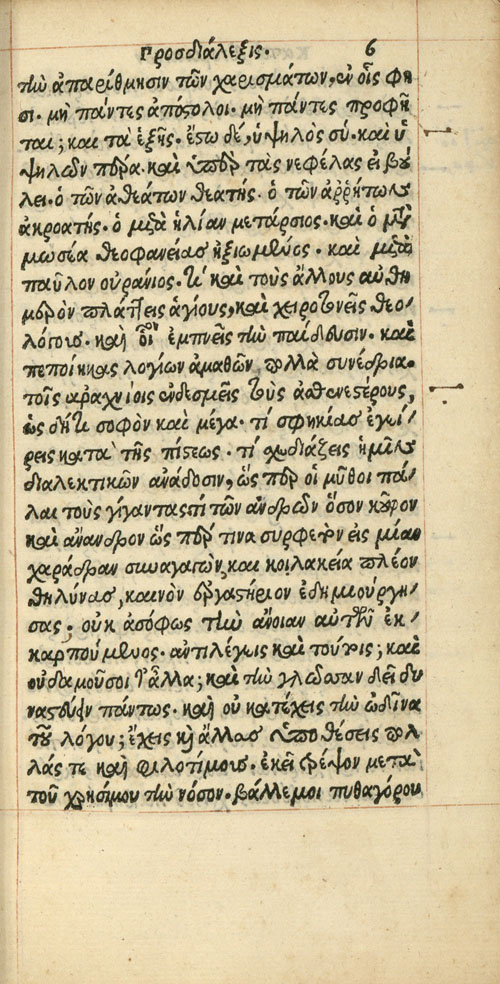 Προσδιάλεξις. 6
τὴν ἀπαρίθμησιν τῶν χαρισμάτων, ἐν οἷς φη
σι. μὴ πάντες ἀπόστολοι. μὴ πάντες προφῆ
ται; καὶ τὰ ἑξῆς. ἔστω δέ, ὑψηλὸς σύ. καὶ ὑ
ψηλῶν πέρα. καὶ ὑπὲρ τὰς νεφέλας εἰ βού
λει. ὁ τῶν ἀθεάτων θεατής. ὁ τῶν ἀῤῥήτων
ἀκροατής. ὁ μετὰ ἡλίαν μετάρσιος. καὶ ὁ μετὰ
μωσέα θεοφανείας ἠξιωμένος. καὶ μετὰ
παῦλον οὐράνιος. τί καὶ τοὺς ἄλλους αὐθη
μερὸν πλάττεις ἁγίους, καὶ χειροτονεῖς θεο/
λόγους. καὶ οἷον ἐμπνεῖς τὴν παίδευσιν. καὶ
πεποίηκας λογίων ἀμαθῶν, πολλὰ συνέδρια.
τοῖς ἀραχνίοις ἐνδεσμεῖς τοὺς ἀσθενεστέρους,
ὡς δή τι σοφὸν καὶ μέγα. τί σφηκίας ἐγεί/
ρεις κατὰ τῆς πίστεως. τί σχεδιάζεις ἡμῖν
διαλεκτικῶν ἀνάδοσιν, ὥς περ οἱ μῦθοι πά/
λαι τοὺς γίγαντας; τί τῶν ἀνδρῶν ὅσον κοῦφον
καὶ ἄνανδρον ὥς πέρ τινα συρφετὸν εἰς μίαν
χαράδραν συναγαγὼν, καὶ κολακεία πλέον
θηλύνας, καινὸν ἐργαστήριον ἐδημιούργη/
σας; οὐκ ἀσόφως τὴν ἄνοιαν αὐτῶν ἐκ/
καρπούμενος. ἀντιλέγεις καὶ τούτοις; καὶ
οὐδαμοῦ σοι τἄλλα; καὶ τὴν γλῶσσαν δεῖ δυ
ναστεύειν πάντως. καὶ οὐ κατέχεις τὴν ὠδῖνα
τοῦ λόγου; ἔχεις καὶ ἄλλας ὑποθέσεις πολ
λάς τε καὶ φιλοτίμους. ἐκεῖ τρέψον μετὰ
τοῦ χρησίμου τὴν νόσον. βάλλε μοι πυθαγόρου